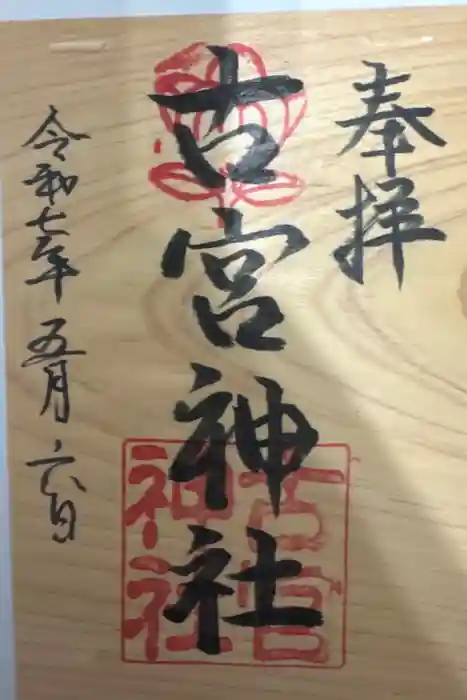 奉拝
古宮神社
古宮
神社
令和七年 五月 六日